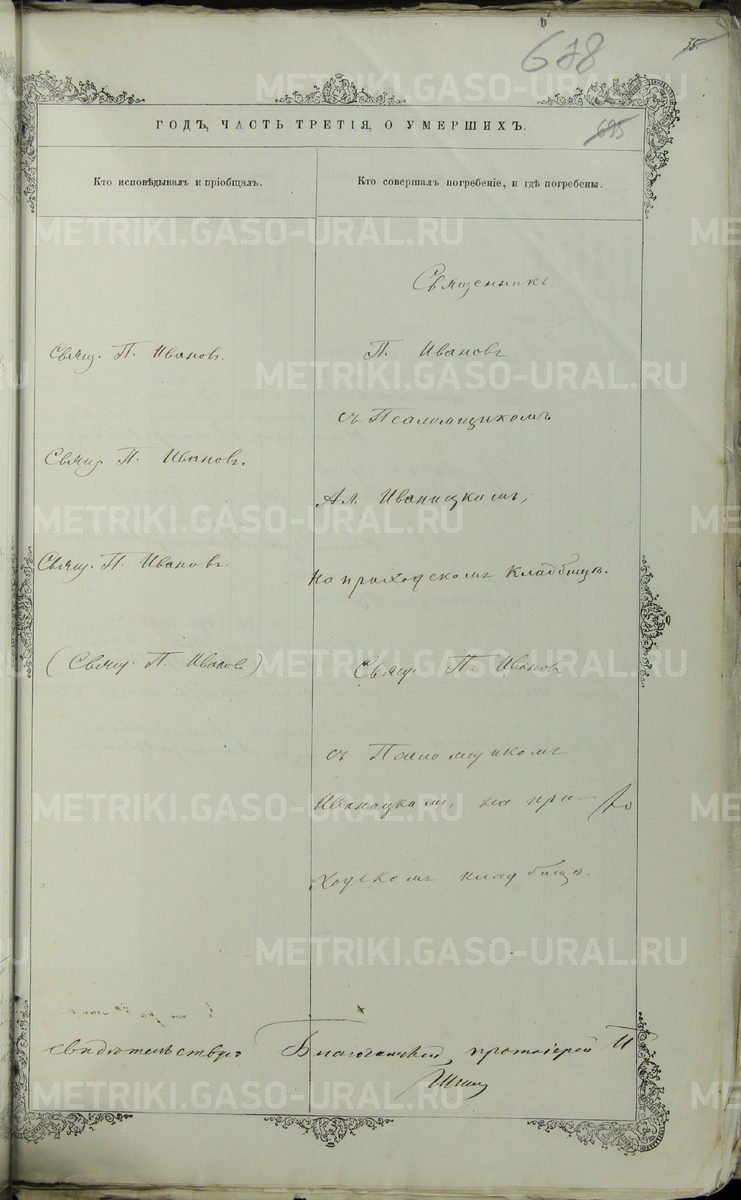 678
35
695
ГОДЪ, ЧАСТЬ ТРЕТІЯ, О УМЕРШИХЪ.
Кто исповѣдывалъ и пріобщалъ.
Кто совершалъ погребеніе, и гдѣ погребены.
Священникъ
Свящ. П. Ивановъ.
П. Ивановъ
съ Псаломщикомъ
Свящ. П. Ивановъ.
Ал. Иваницкимъ,
Свящ. П. Ивановъ.
на приходскомъ кладбищѣ.
(Свящ. П. Ивановъ)
Свящ. П. Ивановъ
съ Псаломщикомъ
Иваницкимъ, на при-
ходскомъ кладбищѣ.
свидѣтельствую Благочинный, протоіерей П
METRIKI.GASO-URAL.RU